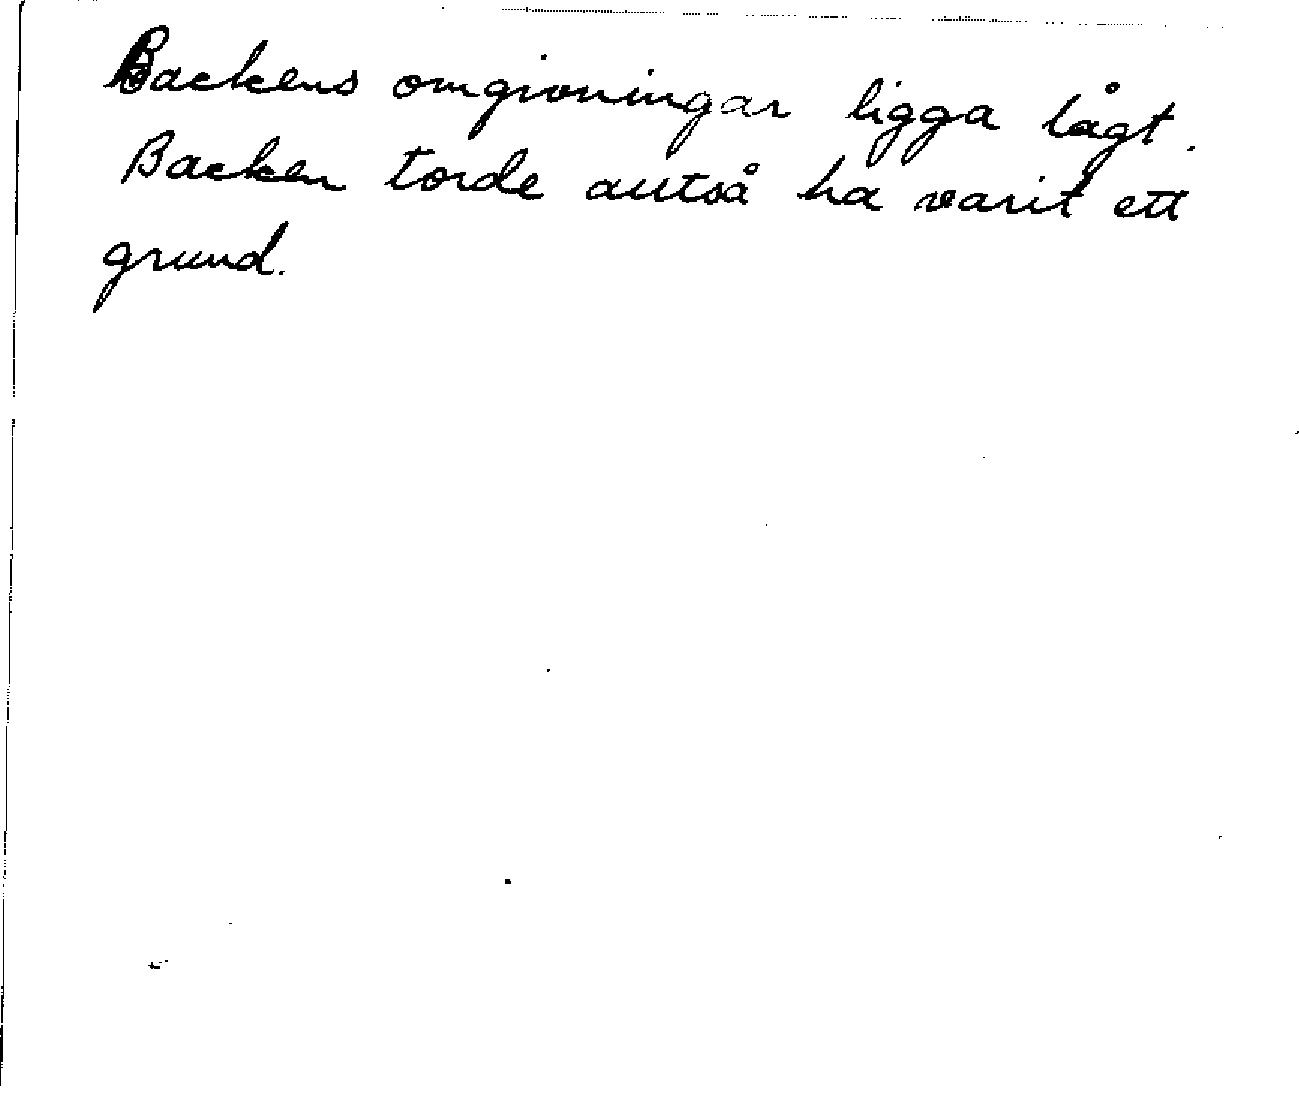 Backens omgivningar ligga lågt.
Backen torde alltså ha varit ett
grund.